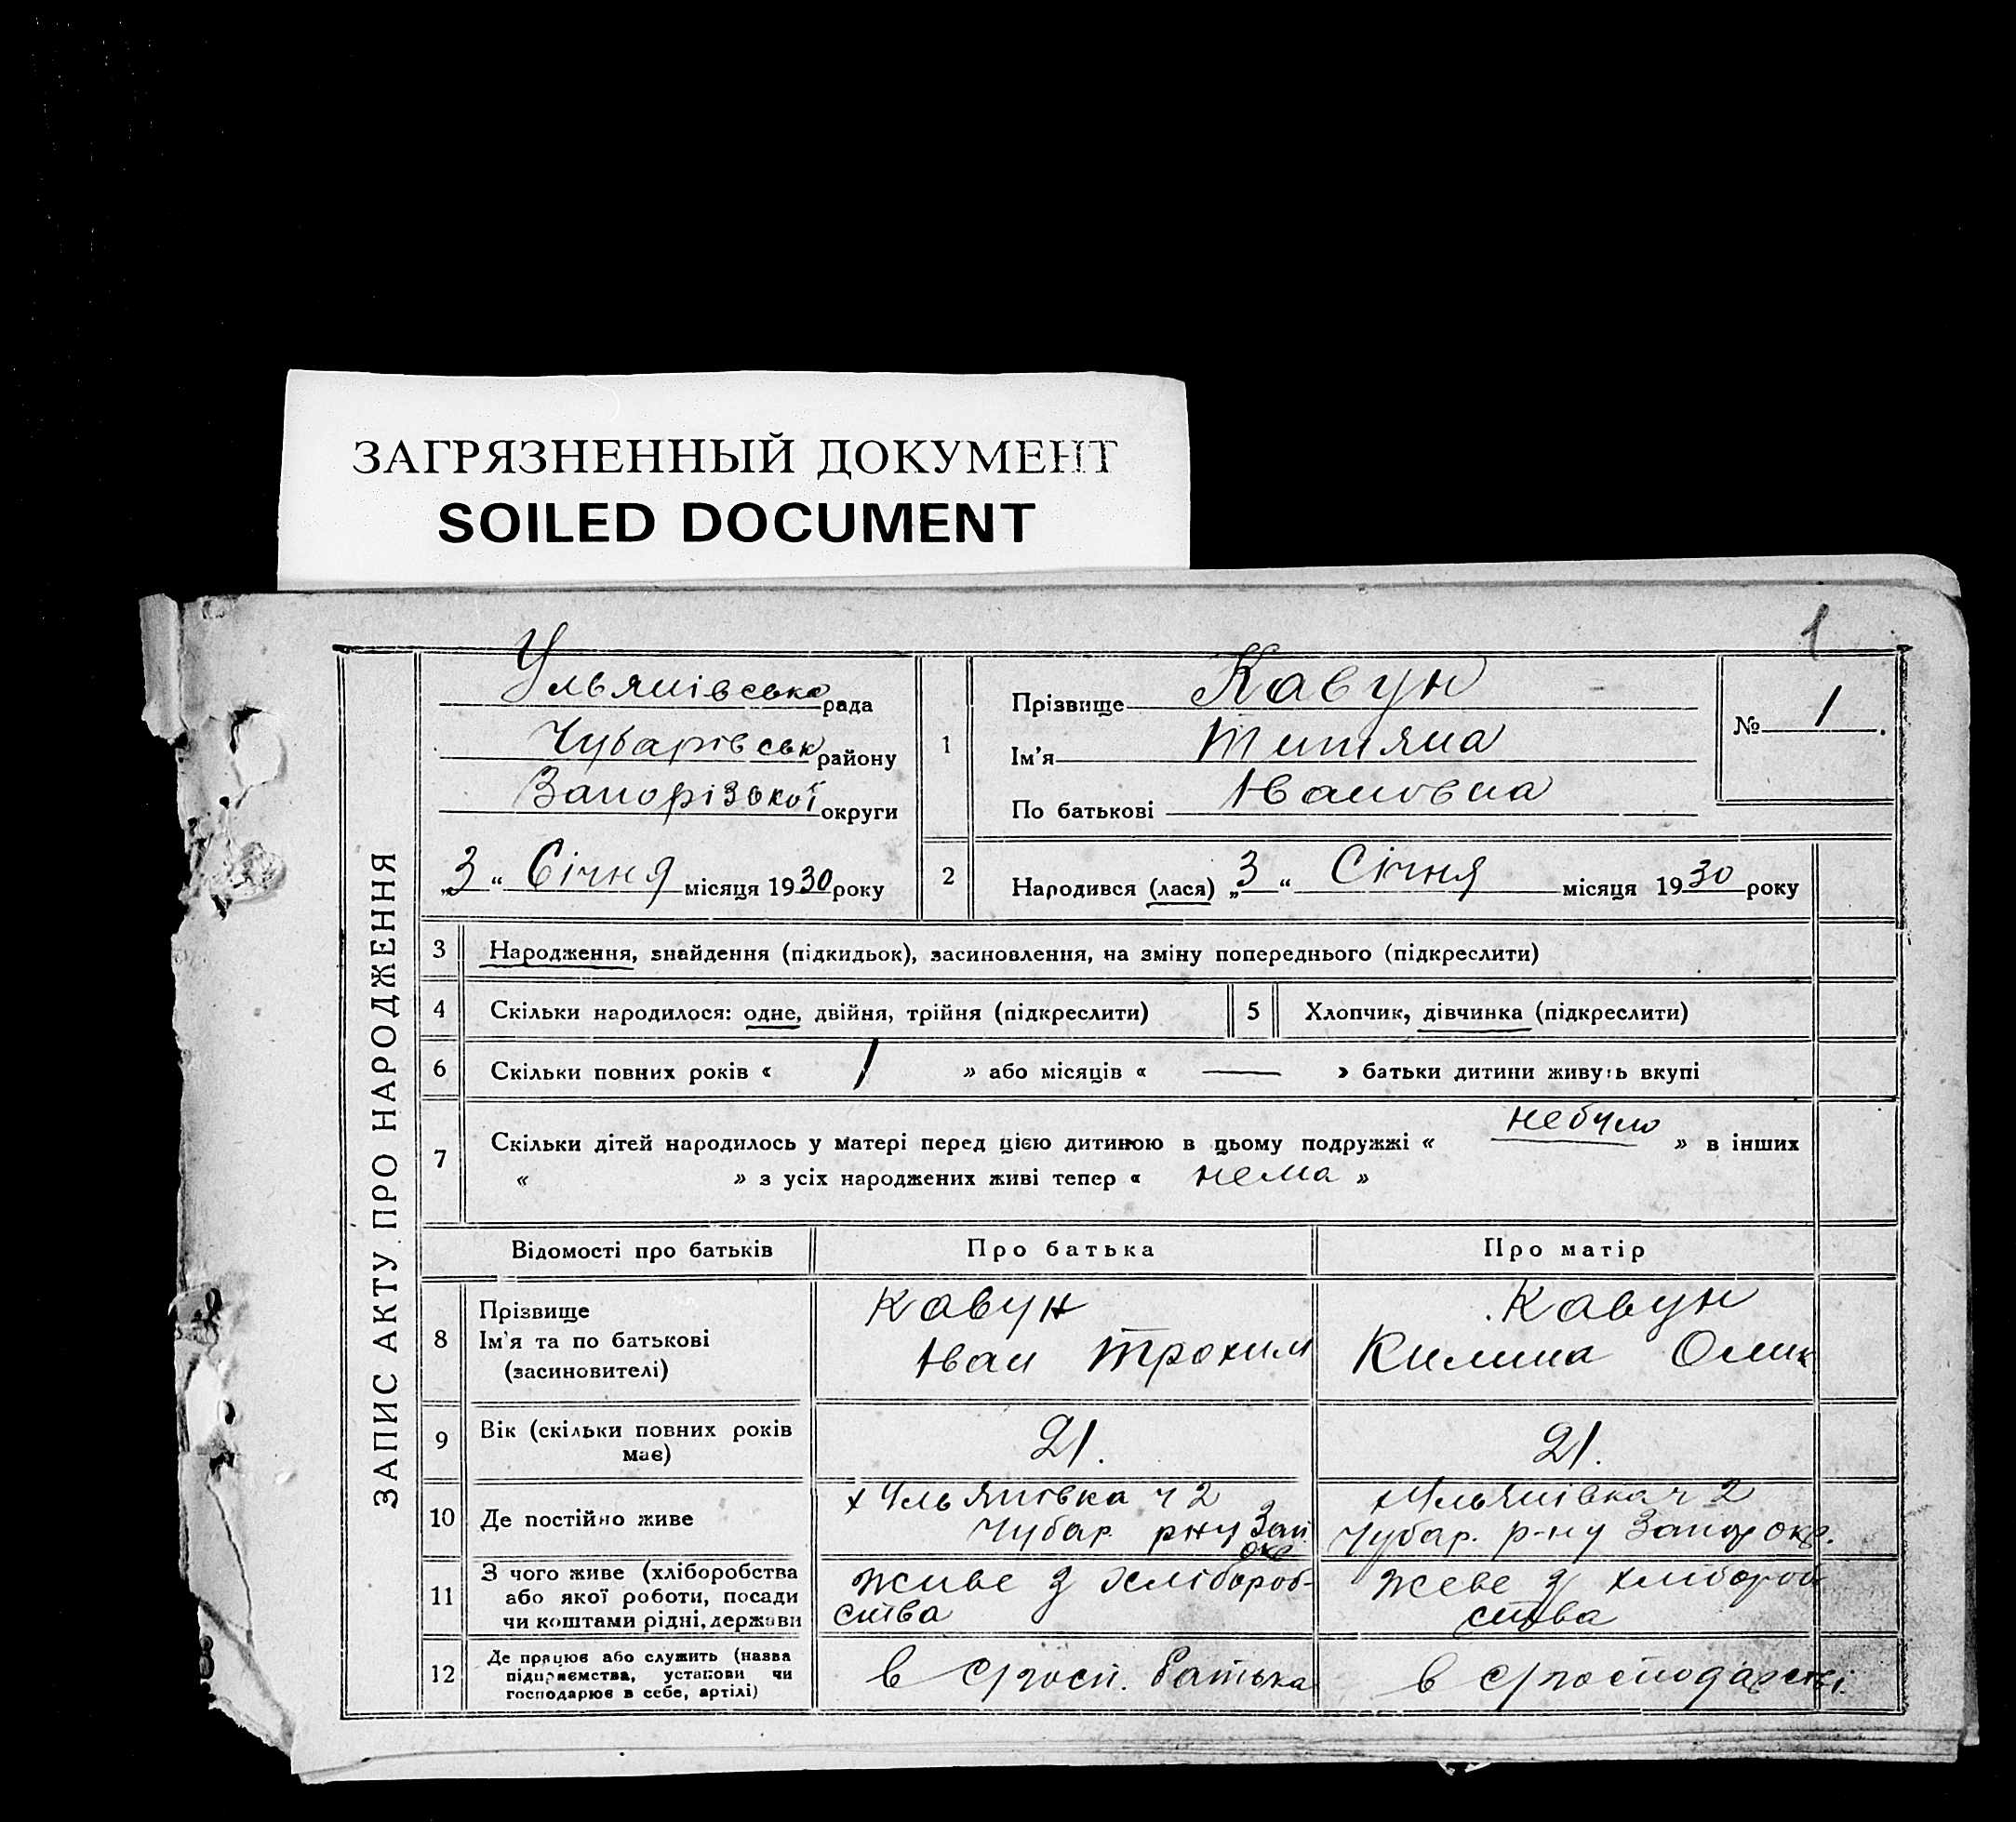 ЗАГРЯЗНЕННЫЙ ДОКУМЕНТ
SOILED DOCUMENT
1
ЗАПИС АКТУ ПРО НАРОДЖЕННЯ
Ульянівська рада
Чубарівськ району
Запорізької округи
„3“ Січня місяця 1930 року
1
Прізвище Кавун
Ім'я Титяна
По батькові Івановна
№ 1.
2
Народився (лася) „3“ Січня місяця 1930 року
3 Народження, знайдення (підкидьок), засиновлення, на зміну попереднього (підкреслити)
4 Скільки народилося: одне, двійня, трійня (підкреслити) 5 Хлопчик, дівчинка (підкреслити)
6 Скільки повних років « 1 » або місяців « — » батьки дитини живуть вкупі
7 Скільки дітей народилось у матері перед цією дитиною в цьому подружжі « небуло » в інших
« » з усіх народжених живі тепер « нема »
Відомості про батьків Про батька Про матір
8
Прізвище Кавун Кавун
Ім'я та по батькові Іван Трохим Килина Оми
(засиновителі)
9 Вік (скільки повних років має) 21. 21.
10 Де постійно живе
х Ульянівка ч 2
Чубар. рну Зап. окр
х Ульянівка ч 2
Чубар. р-ну Запор окр.
11 З чого живе (хліборобства
або якої роботи, посади
чи коштами рідні, держави
живе з хлібороб-
ства
жеве з хлібороб
ства
12 Де працює або служить (назва
підприємства, установи чи
господарює в себе, артілі)
в с/госп. батька
в с/господарстві.